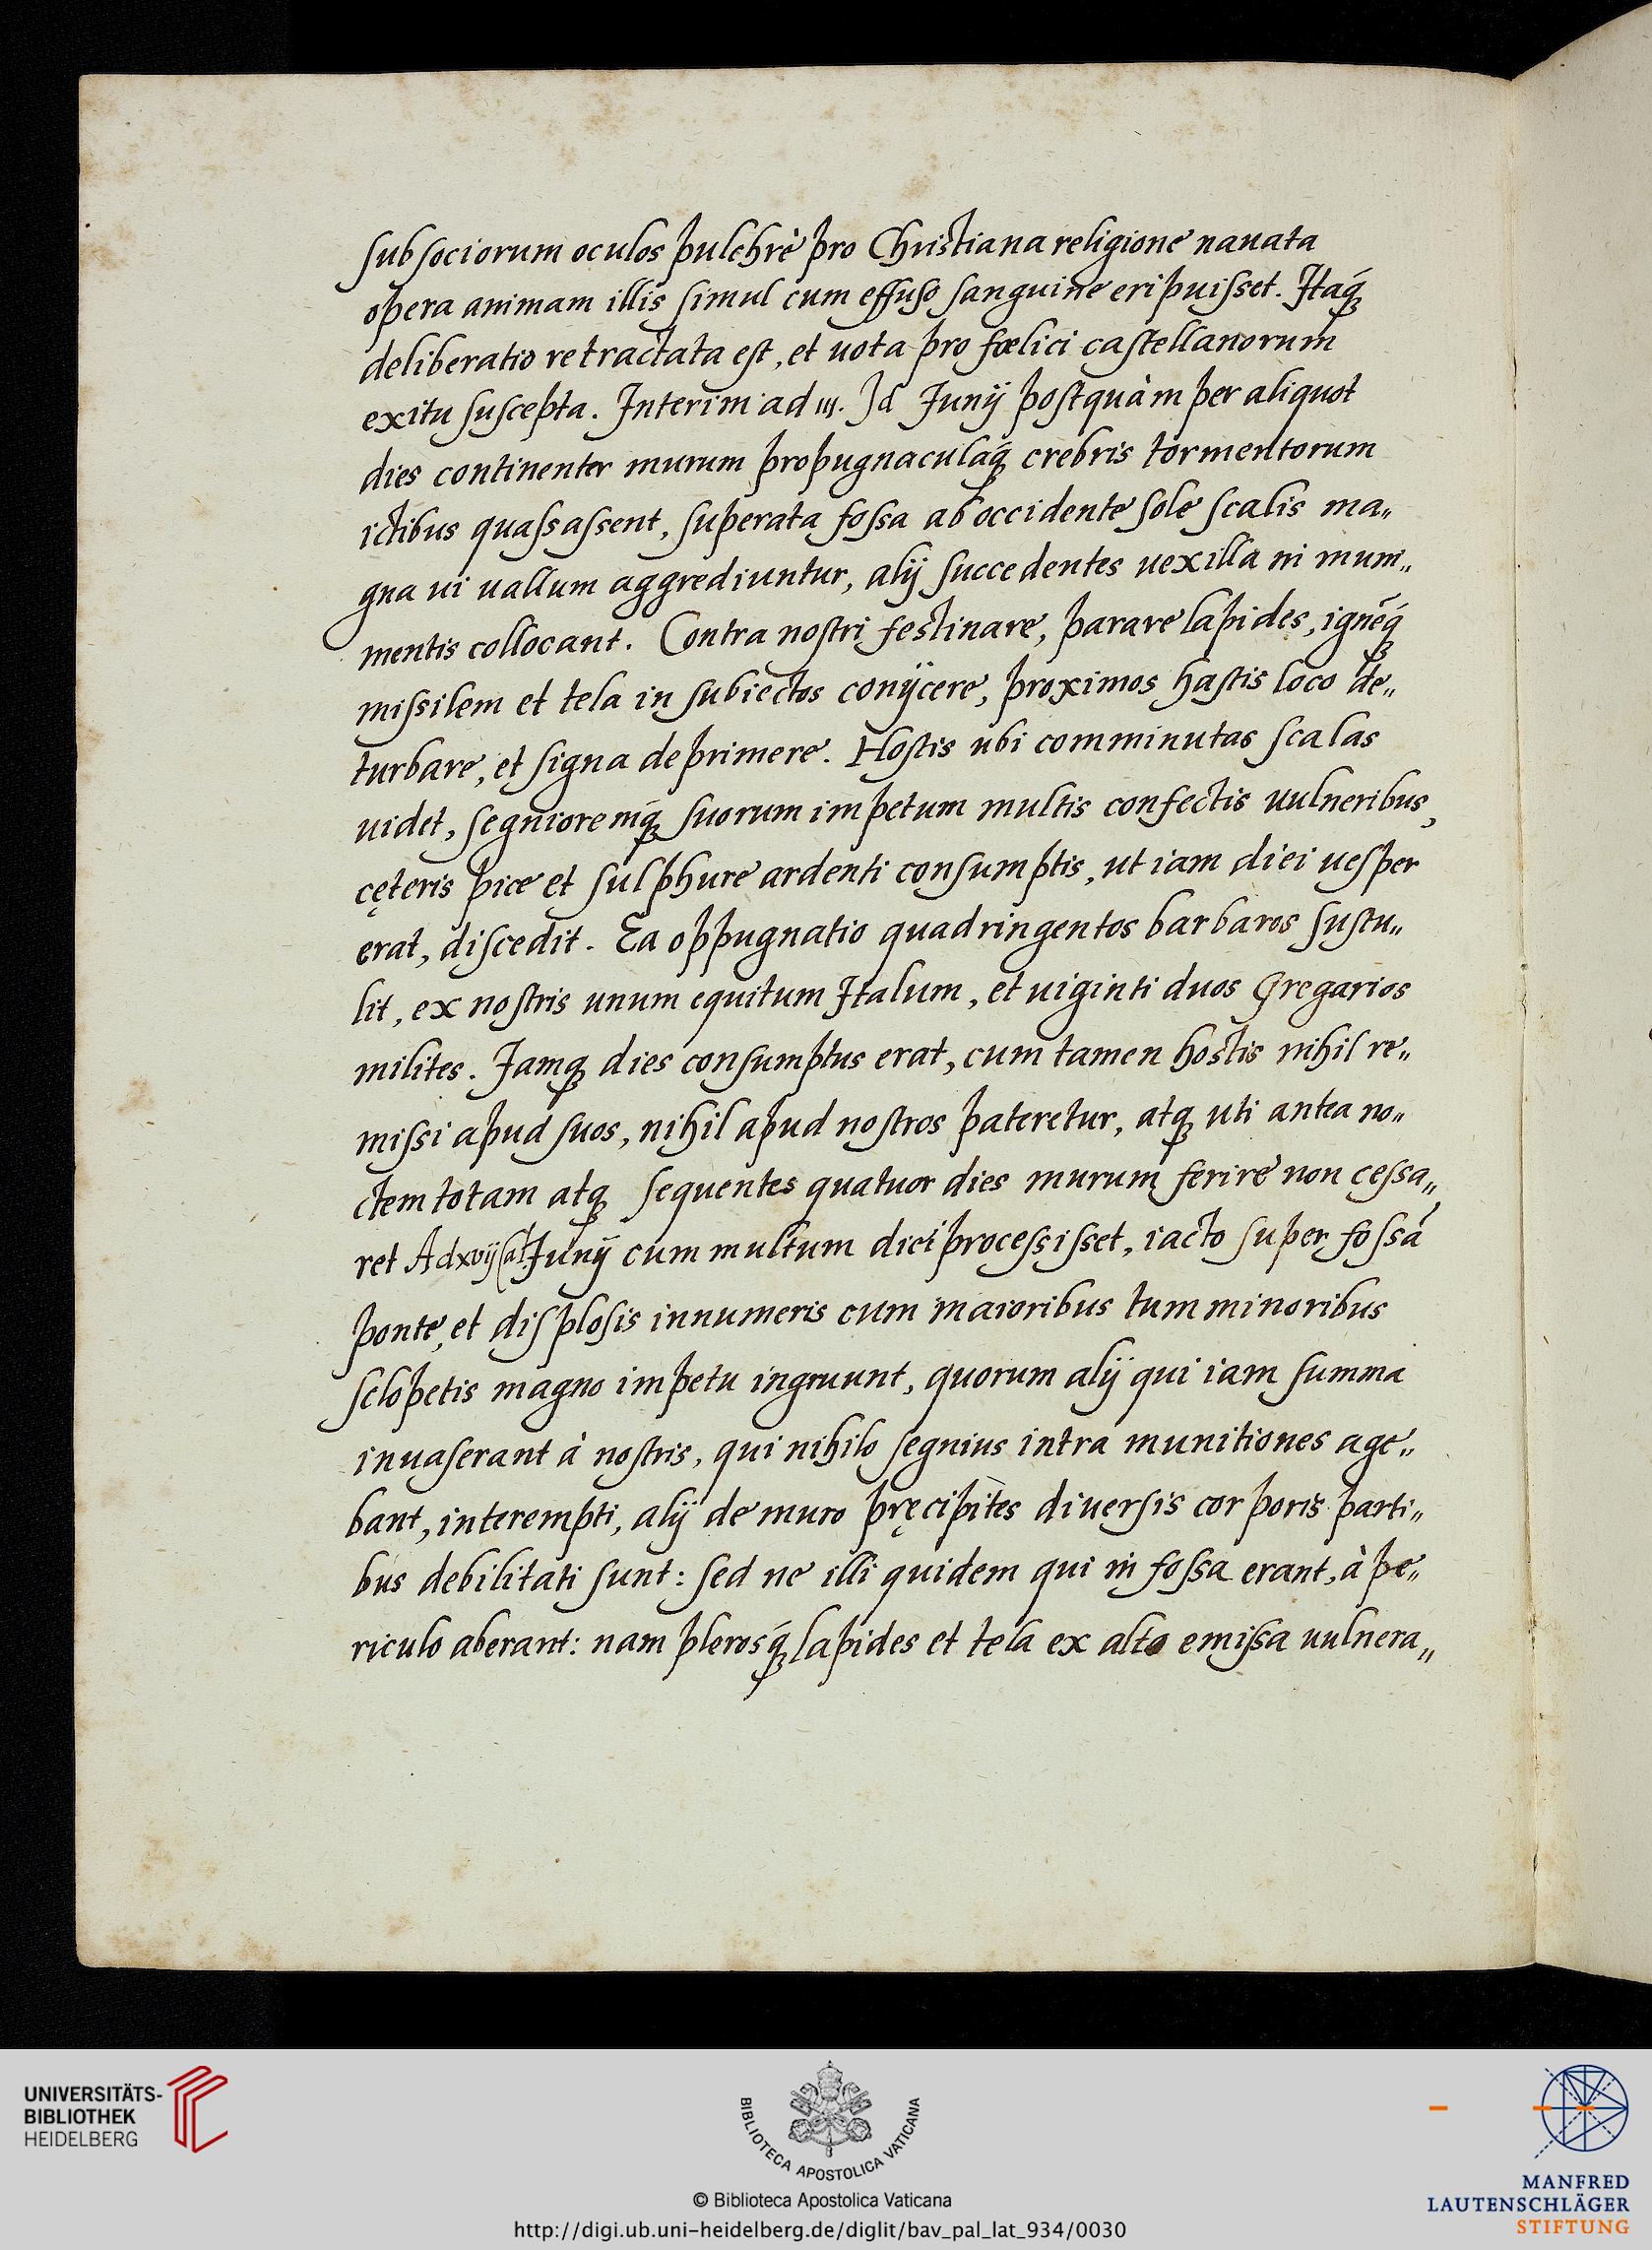 sub sociorum oculos pulchrè pro Christiana religione nauata
opera animam illis simul cum effuso sanguine eripuisset. Itaq́;
deliberatio retractata est, et uota pro fœlici castellanorum
exitu suscepta. Interim ad III. Id Iunij postquàm per aliquot
dies continenter murum propugnaculaq́; crebris tormentorum
ictibus quassassent, superata fossa ab occidente sole scalis ma„
gna ui uallum aggrediuntur, alij succedentes uexilla in muni„
mentis collocant. Contra nostri festinare, parare lapides, ignẽq́;
missilem et tela in subiectos conijcere, proximos hastis loco de„
turbare, et signa deprimere. Hostis ubi comminutas scalas
uidet, segnioremq́; suorum impetum multis confectis uulneribus,
cęteris pice et sulphure ardenti consumptis, ut iam diei uesper
erat, discedit. Ea oppugnatio quadringentos barbaros sustu„
lit, ex nostris unum equitum Italum, et uiginti duos Gregarios
milites. Iamq; dies consumptus erat, cum tamen hostis nihil re„
missi apud suos, nihil apud nostros pateretur, atq; uti antea no„
ctem totam atq; sequentes quatuor dies murum ferire non cessa„
ret Ad xvij Cal. Iunij cum multum diei processisset, iacto super fossã
ponte, et displosis innumeris cum maioribus tum minoribus
sclopetis magno impetu ingruunt, quorum alij qui iam summa
inuaserant à nostris, qui nihilo segnius intra munitiones age„
bant, interempti, alij de muro pręcipites diuersis corporis parti„
bus debilitati sunt: sed ne illi quidem qui in fossa erant, à pe„
riculo aberant: nam plerosq́; lapides et tela ex alto emissa uulnera„
UNIVERSITÄTS-
BIBLIOTHEK
HEIDELBERG
BIBLIOTECA APOSTOLICA VATICANA
© Biblioteca Apostolica Vaticana
http://digi.ub.uni-heidelberg.de/diglit/bav_pal_lat_934/0030
MANFRED
LAUTENSCHLÄGER
STIFTUNG